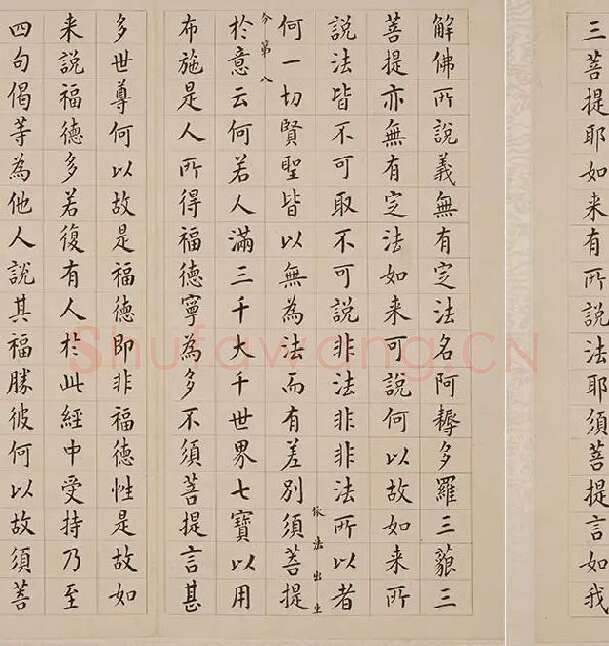 三菩提耶如来有所說法耶須菩提言如我
解佛所說義無有定法名阿耨多羅三藐三
菩提亦無有定法如来可說何以故如来所
說法皆不可取不可說非法非非法所以者
何一切賢聖皆以無為法而有差別須菩提
依法出生
分第八
於意云何若人滿三千大千世界七寶以用
布施是人所得福德寧為多不須菩提言甚
多世尊何以故是福德即非福德性是故如
来說福德多若復有人於此經中受持乃至
四句偈等為他人說其福勝彼何以故須菩
Shufawang.CN